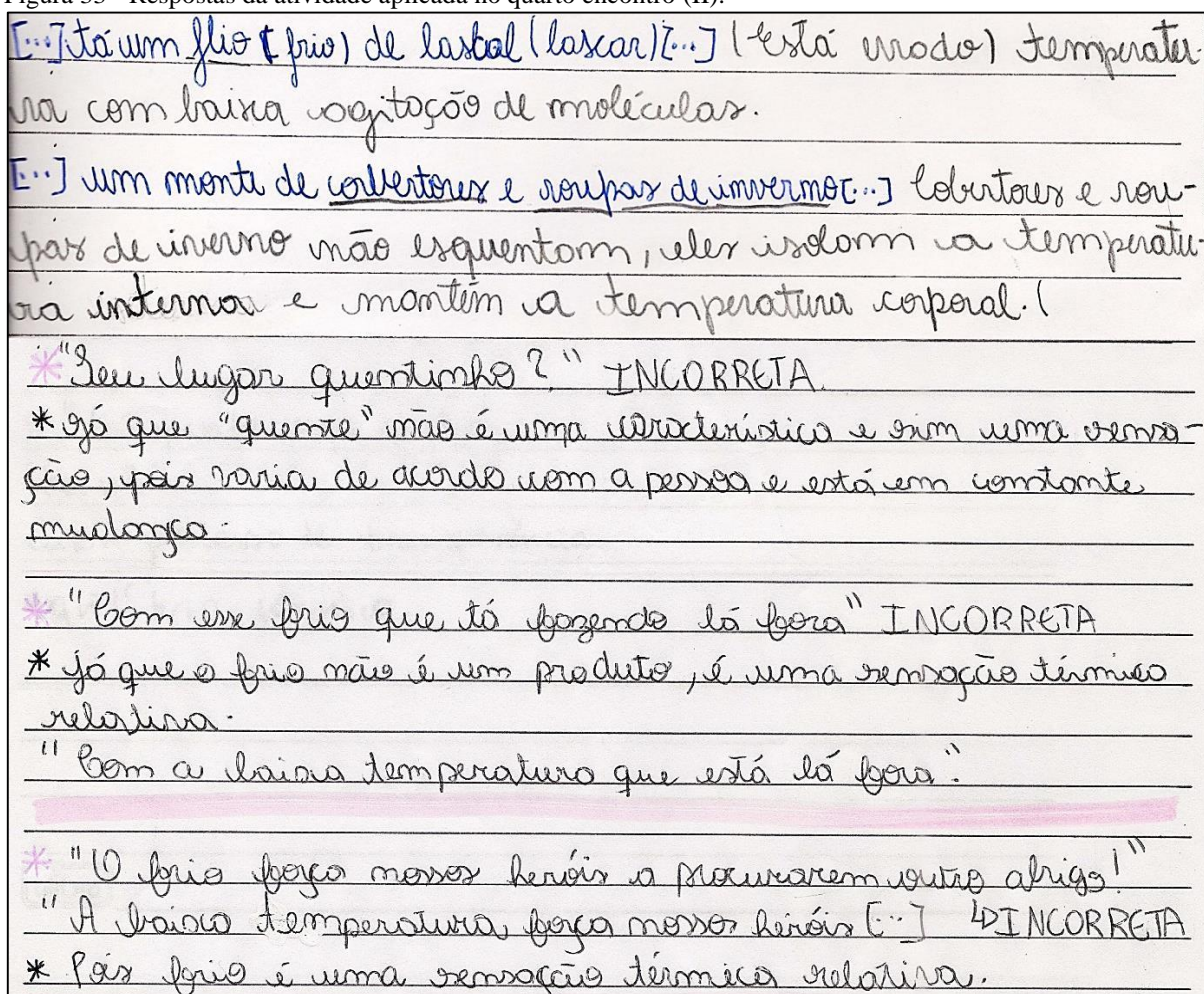 Figura 33 – Respostas da atividade aplicada no quarto encontro (II).
[...] tá um flio (frio) de lascal (lascar) [...] (está errado) temperatu-
ra com baixa agitação de moléculas.
[...] um monte de cobertores e roupas de inverno [...] Cobertores e rou-
pas de inverno não esquentam, eles isolam a temperatu-
ra interna e mantém a temperatura corporal. (
* "Seu lugar quentinho?" INCORRETA.
* Já que "quente" não é uma característica e sim uma sensa-
ção, pois varia de acordo com a pessoa e está em constante
mudança.
* "Com esse frio que tá fazendo lá fora" INCORRETA
* já que o frio não é um produto, é uma sensação térmica
relativa.
"Com a baixa temperatura que está lá fora".
* "O frio força nossos heróis a procurarem outro abrigo!"
"A baixa temperatura força nossos heróis [...] ↳ INCORRETA
* Pois frio é uma sensação térmica relativa.